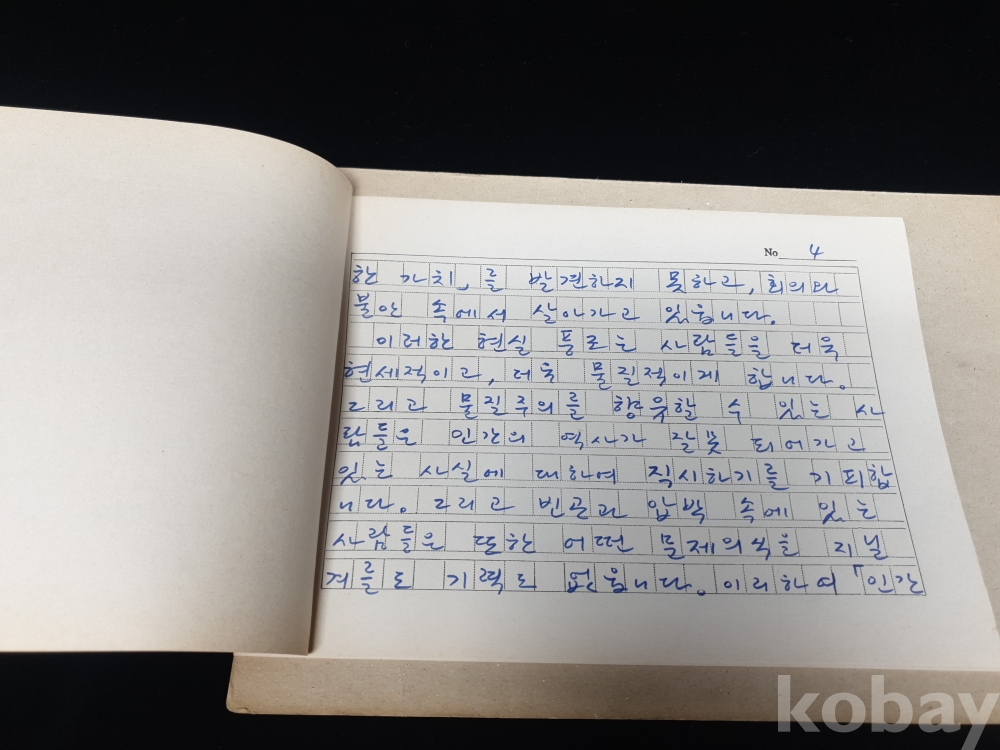 No 4
한 가치」를 발견하지 못하고, 회의와
불안 속에서 살아가고 있읍니다.
이러한 현실 풍로는 사람들을 더욱
현세적이고, 더욱 물질적이게 합니다.
그리고 물질주의를 향유할 수 있는 사
람들은 인간의 역사가 잘못 되어가고
있는 사실에 대하여 직시하기를 기피합
니다. 그리고 빈곤과 압박 속에 있는
사람들은 또한 어떤 문제의식을 지닐
겨를도 기력도 없읍니다. 이리하여 「인간
kobay